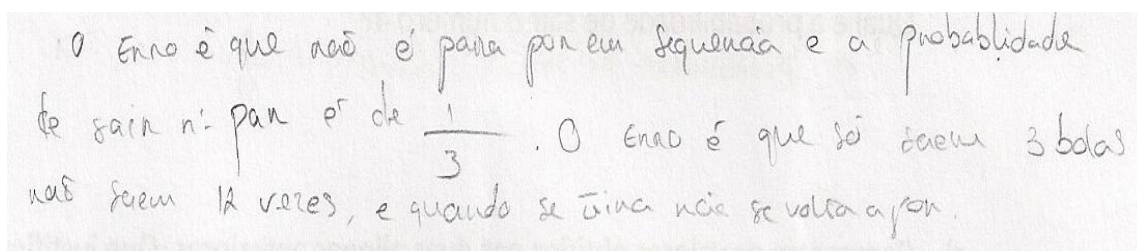 O Erro é que não é para por em sequencia e a probablidade
de sair nº par é de 1/3. O Erro é que só saem 3 bolas
não saem 12 vezes, e quando se tira não se volta a por.